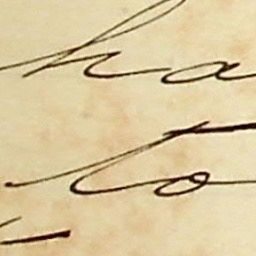 ha
to